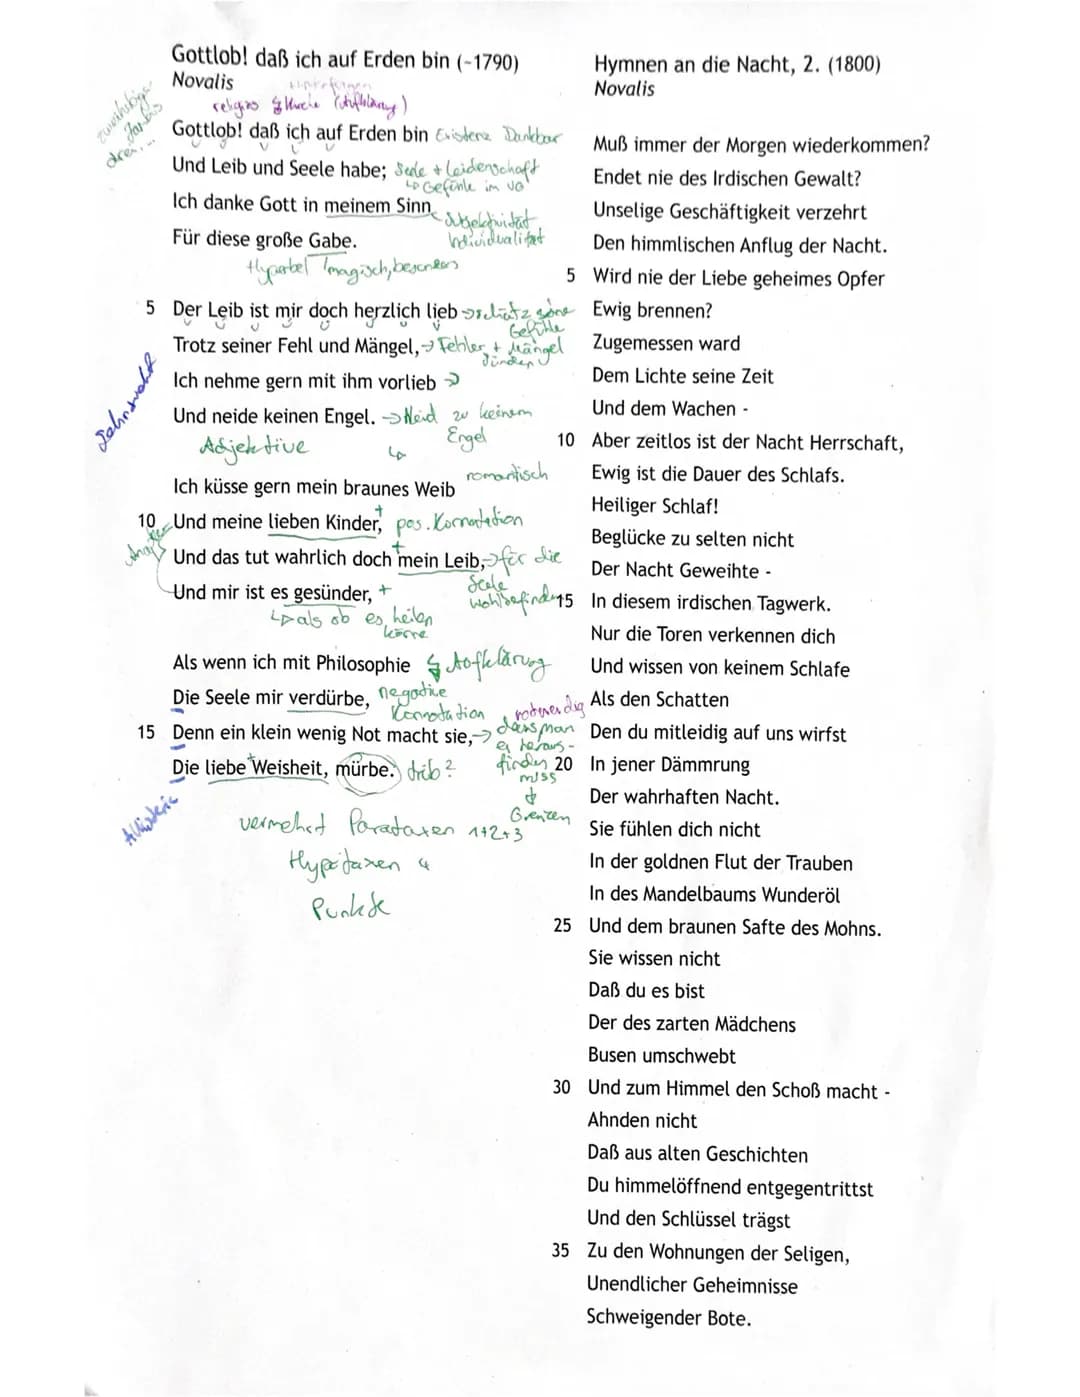 Gottlob! daß ich auf Erden bin (~1790)
Novalis
religiös Kirche (Aufklärung)
Gottlob! daß ich auf Erden bin Existenz Dankbar
Und Leib und Seele habe; Seele + Leidenschaft
↳ Gefühle im VG
Ich danke Gott in meinem Sinn
Subjektivität
Individualität
Für diese große Gabe.
Hyperbel magisch, besonders
5 Der Leib ist mir doch herzlich lieb → schätz seine
Gefühle
Trotz seiner Fehl und Mängel, → Fehler + Mängel
Sünden
Ich nehme gern mit ihm vorlieb →
Und neide keinen Engel. → Neid zu keinem
Engel
Adjektive
Sehnsucht
romantisch
Ich küsse gern mein braunes Weib
10 Und meine lieben Kinder, pos. Konnotation
Und das tut wahrlich doch mein Leib, → für die
Seele
wohlbefinden
Und mir ist es gesünder, +
↳ als ob es heilen
könne
Als wenn ich mit Philosophie ↯ Aufklärung
Die Seele mir verdürbe, negative
Konnotation
notwendig
15 Denn ein klein wenig Not macht sie, → dass man
es heraus-
finden
muss
Grenzen
Die liebe Weisheit, mürbe. trüb?
Alliteration
vermehrt Parataxen 1+2+3
Hypotaxen 4
Punkte
Hymnen an die Nacht, 2. (1800)
Novalis
Muß immer der Morgen wiederkommen?
Endet nie des Irdischen Gewalt?
Unselige Geschäftigkeit verzehrt
Den himmlischen Anflug der Nacht.
5 Wird nie der Liebe geheimes Opfer
Ewig brennen?
Zugemessen ward
Dem Lichte seine Zeit
Und dem Wachen -
10 Aber zeitlos ist der Nacht Herrschaft,
Ewig ist die Dauer des Schlafs.
Heiliger Schlaf!
Beglücke zu selten nicht
Der Nacht Geweihte -
15 In diesem irdischen Tagwerk.
Nur die Toren verkennen dich
Und wissen von keinem Schlafe
Als den Schatten
Den du mitleidig auf uns wirfst
20 In jener Dämmrung
Der wahrhaften Nacht.
Sie fühlen dich nicht
In der goldnen Flut der Trauben
In des Mandelbaums Wunderöl
25 Und dem braunen Safte des Mohns.
Sie wissen nicht
Daß du es bist
Der des zarten Mädchens
Busen umschwebt
30 Und zum Himmel den Schoß macht -
Ahnden nicht
Daß aus alten Geschichten
Du himmelöffnend entgegentrittst
Und den Schlüssel trägst
35 Zu den Wohnungen der Seligen,
Unendlicher Geheimnisse
Schweigender Bote.